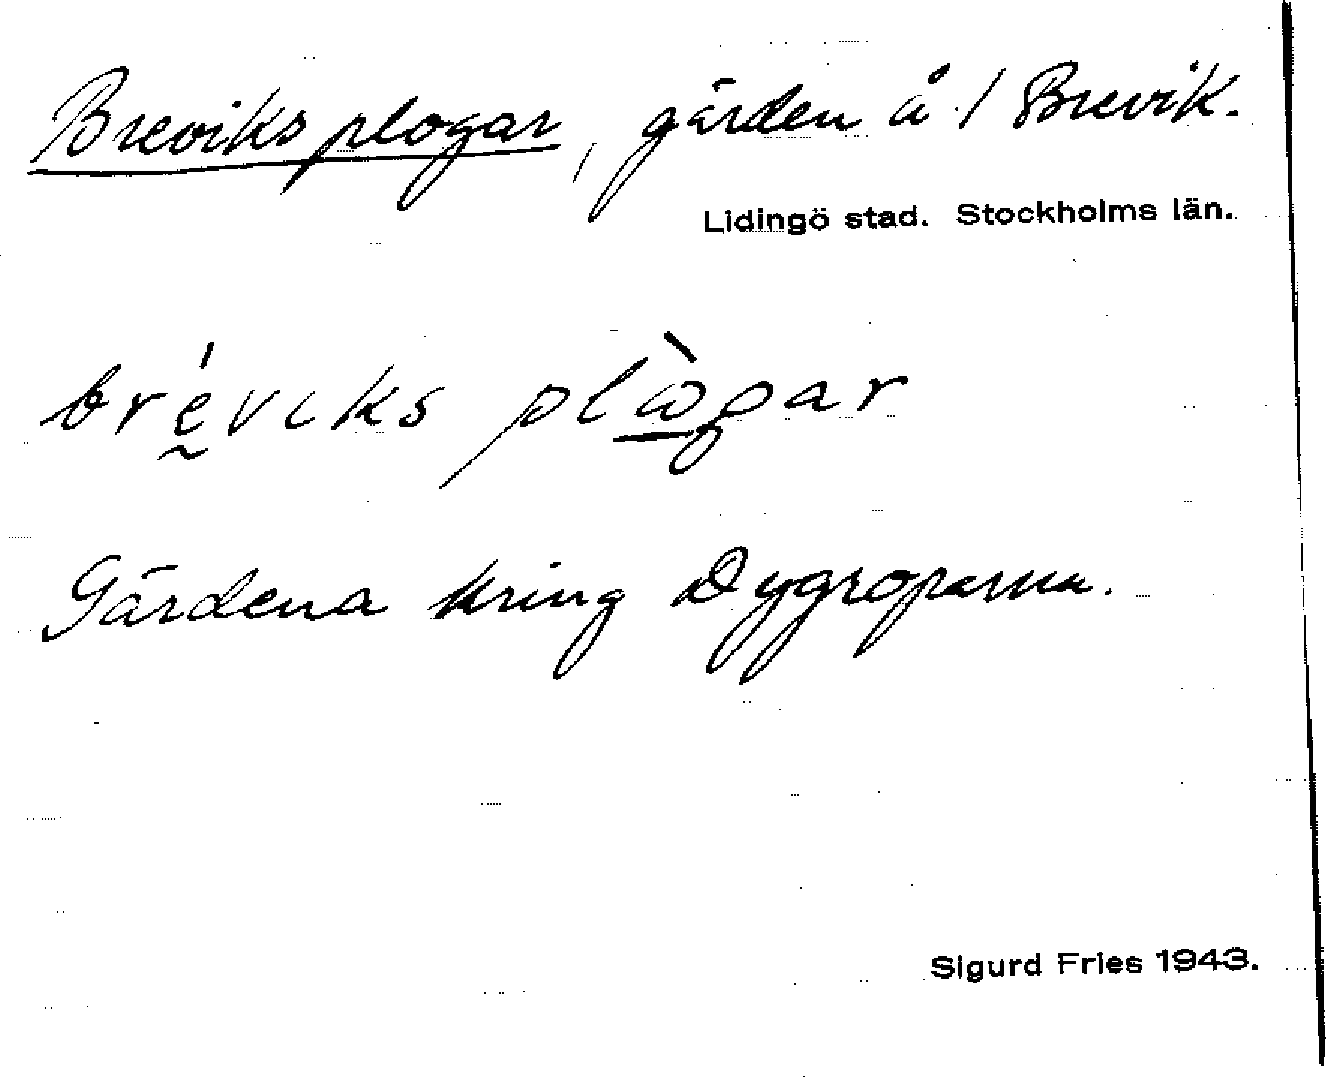 Breviks plogar, gärden å 1 Brevik.
Lidingö stad. Stockholms län.
bréviks plògar
Gärdena kring Dygroparna.
Sigurd Fries 1943.